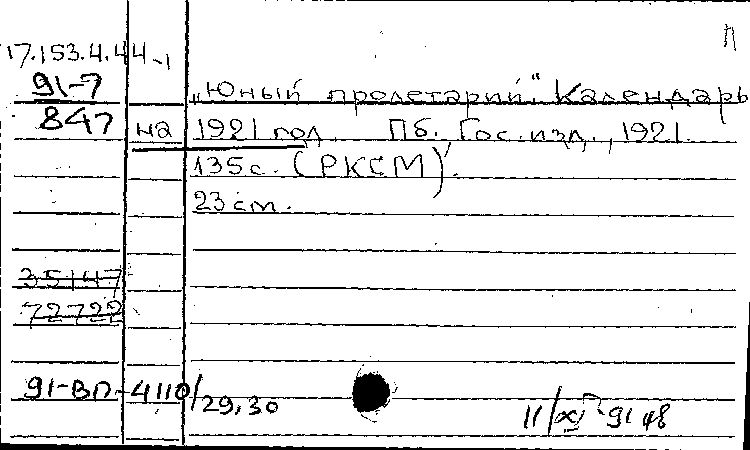 П
17.153.4.44-1
91-7
847
„Юный пролетарий“ Календарь
на 1921 год. Пб. Гос. изд., 1921.
135с. (РКСМ).
23см.
35147
72722
91-ВП-4110/29,30